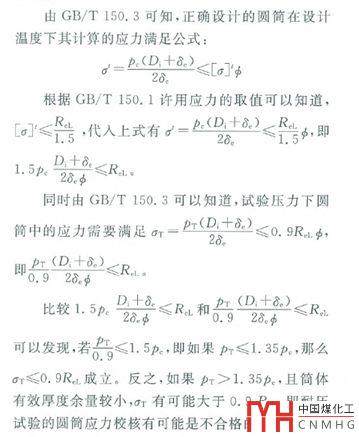 由 GB/T 150.3 可知,正确设计的圆筒在设计
温度下其计算的应力满足公式:
σ′=p_c(D_i+δ_e)/2δ_e≤[σ]′ϕ
根据 GB/T 150.1 许用应力的取值可以知道,
[σ]′≤R_eL/1.5,代入上式有 σ′=p_c(D_i+δ_e)/2δ_e≤R_eL/1.5 ϕ,即
1.5p_c (D_i+δ_e)/2δ_eϕ≤R_eL。
同时由 GB/T 150.3 可以知道,试验压力下圆
筒中的应力需要满足 σ_T=p_T(D_i+δ_e)/2δ_e≤0.9R_eLϕ,
即p_T/0.9 (D_i+δ_e)/2δ_eϕ≤R_eL。
比较 1.5p_c (D_i+δ_e)/2δ_eϕ≤R_eL 和 p_T/0.9 (D_i+δ_e)/2δ_eϕ≤R_eL
可以发现,若p_T/0.9≤1.5p_c,即如果 p_T≤1.35p_c,那么
σ_T≤0.9R_eL成立。反之,如果 p_T>1.35p_c,且筒体
有效厚度余量较小,σ_T 有可能大于 0.9
试验的圆筒应力校核有可能是不合格的
中国煤化工
CNMHG